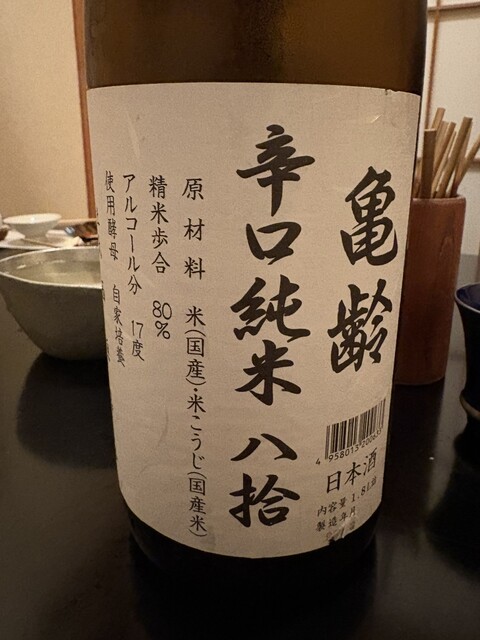 亀齢
辛口純米 八拾
原材料 米(国産)・米こうじ(国産米)
精米歩合 80%
アルコール分 17度
使用酵母 自家培養
日本酒
内容量 1.8L詰
製造年月